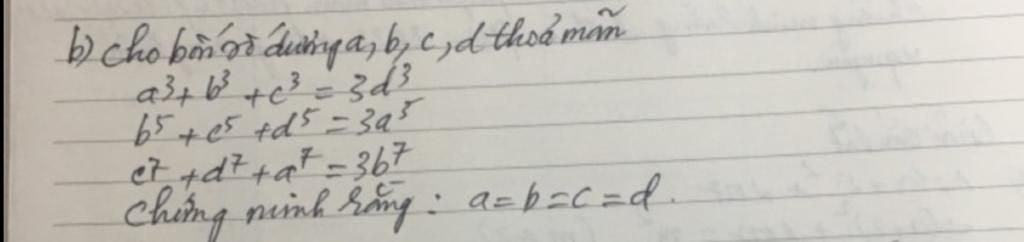 b) Cho bốn số dương a, b, c, d thoả mãn
a³ + b³ + c³ = 3d³
b⁵ + c⁵ + d⁵ = 3a⁵
c⁷ + d⁷ + a⁷ = 3b⁷
Chứng minh rằng : a = b = c = d.